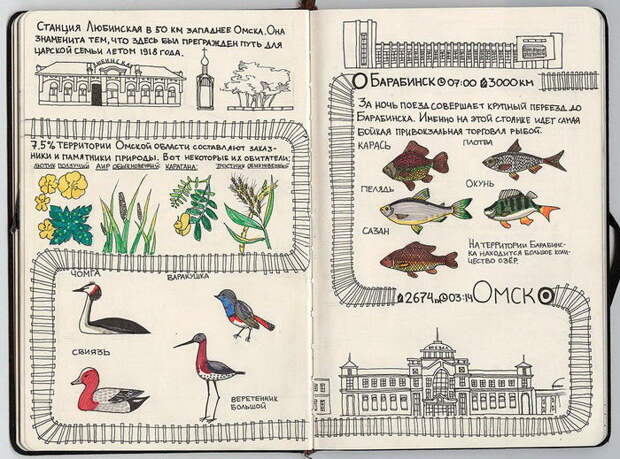 Станция Любинская в 50 км западнее Омска. Она
знаменита тем, что здесь был прегражден путь для
царской семьи летом 1918 года.
7,5% территории Омской области составляют заказ-
ники и памятники природы. Вот некоторые их обитатели:
лютик ползучий аир обыкновенный карагана:
тростник обыкновенный
чомга
варакушка
свиязь
веретенник
большой
Барабинск 07:00 3000 км
За ночь поезд совершает крупный переезд до
Барабинска. Именно на этой стоянке идет самая
бойкая привокзальная торговля рыбой.
карась
плотва
пелядь
окунь
сазан
На территории Барабинс-
ка находится большое коли-
чество озёр.
2674 км 03:14 Омск